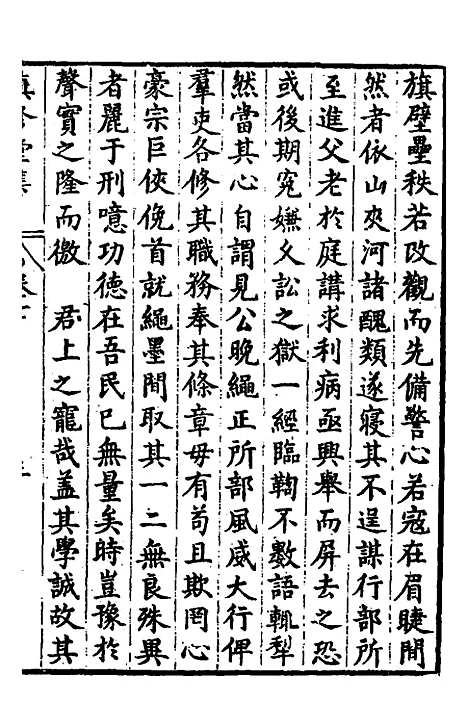 旗壁壘秩若改觀而先備警心若寇在眉睫間
然者依山夾河諸醜類遂寢其不逞謀行部所
至進父老於庭講求利病亟興舉而屏去之恐
或後期寃嫌久訟之獄一經臨鞫不數語輒犁
然當其心自謂見公晚繩正所部風威大行俾
羣吏各修其職務奉其條章毋有苟且欺罔心
豪宗巨俠俛首就繩墨間取其一二無良殊異
者麗于刑噫功德在吾民已無量矣時豈豫於
聲實之隆而徼　君上之寵哉盖其學誠故其